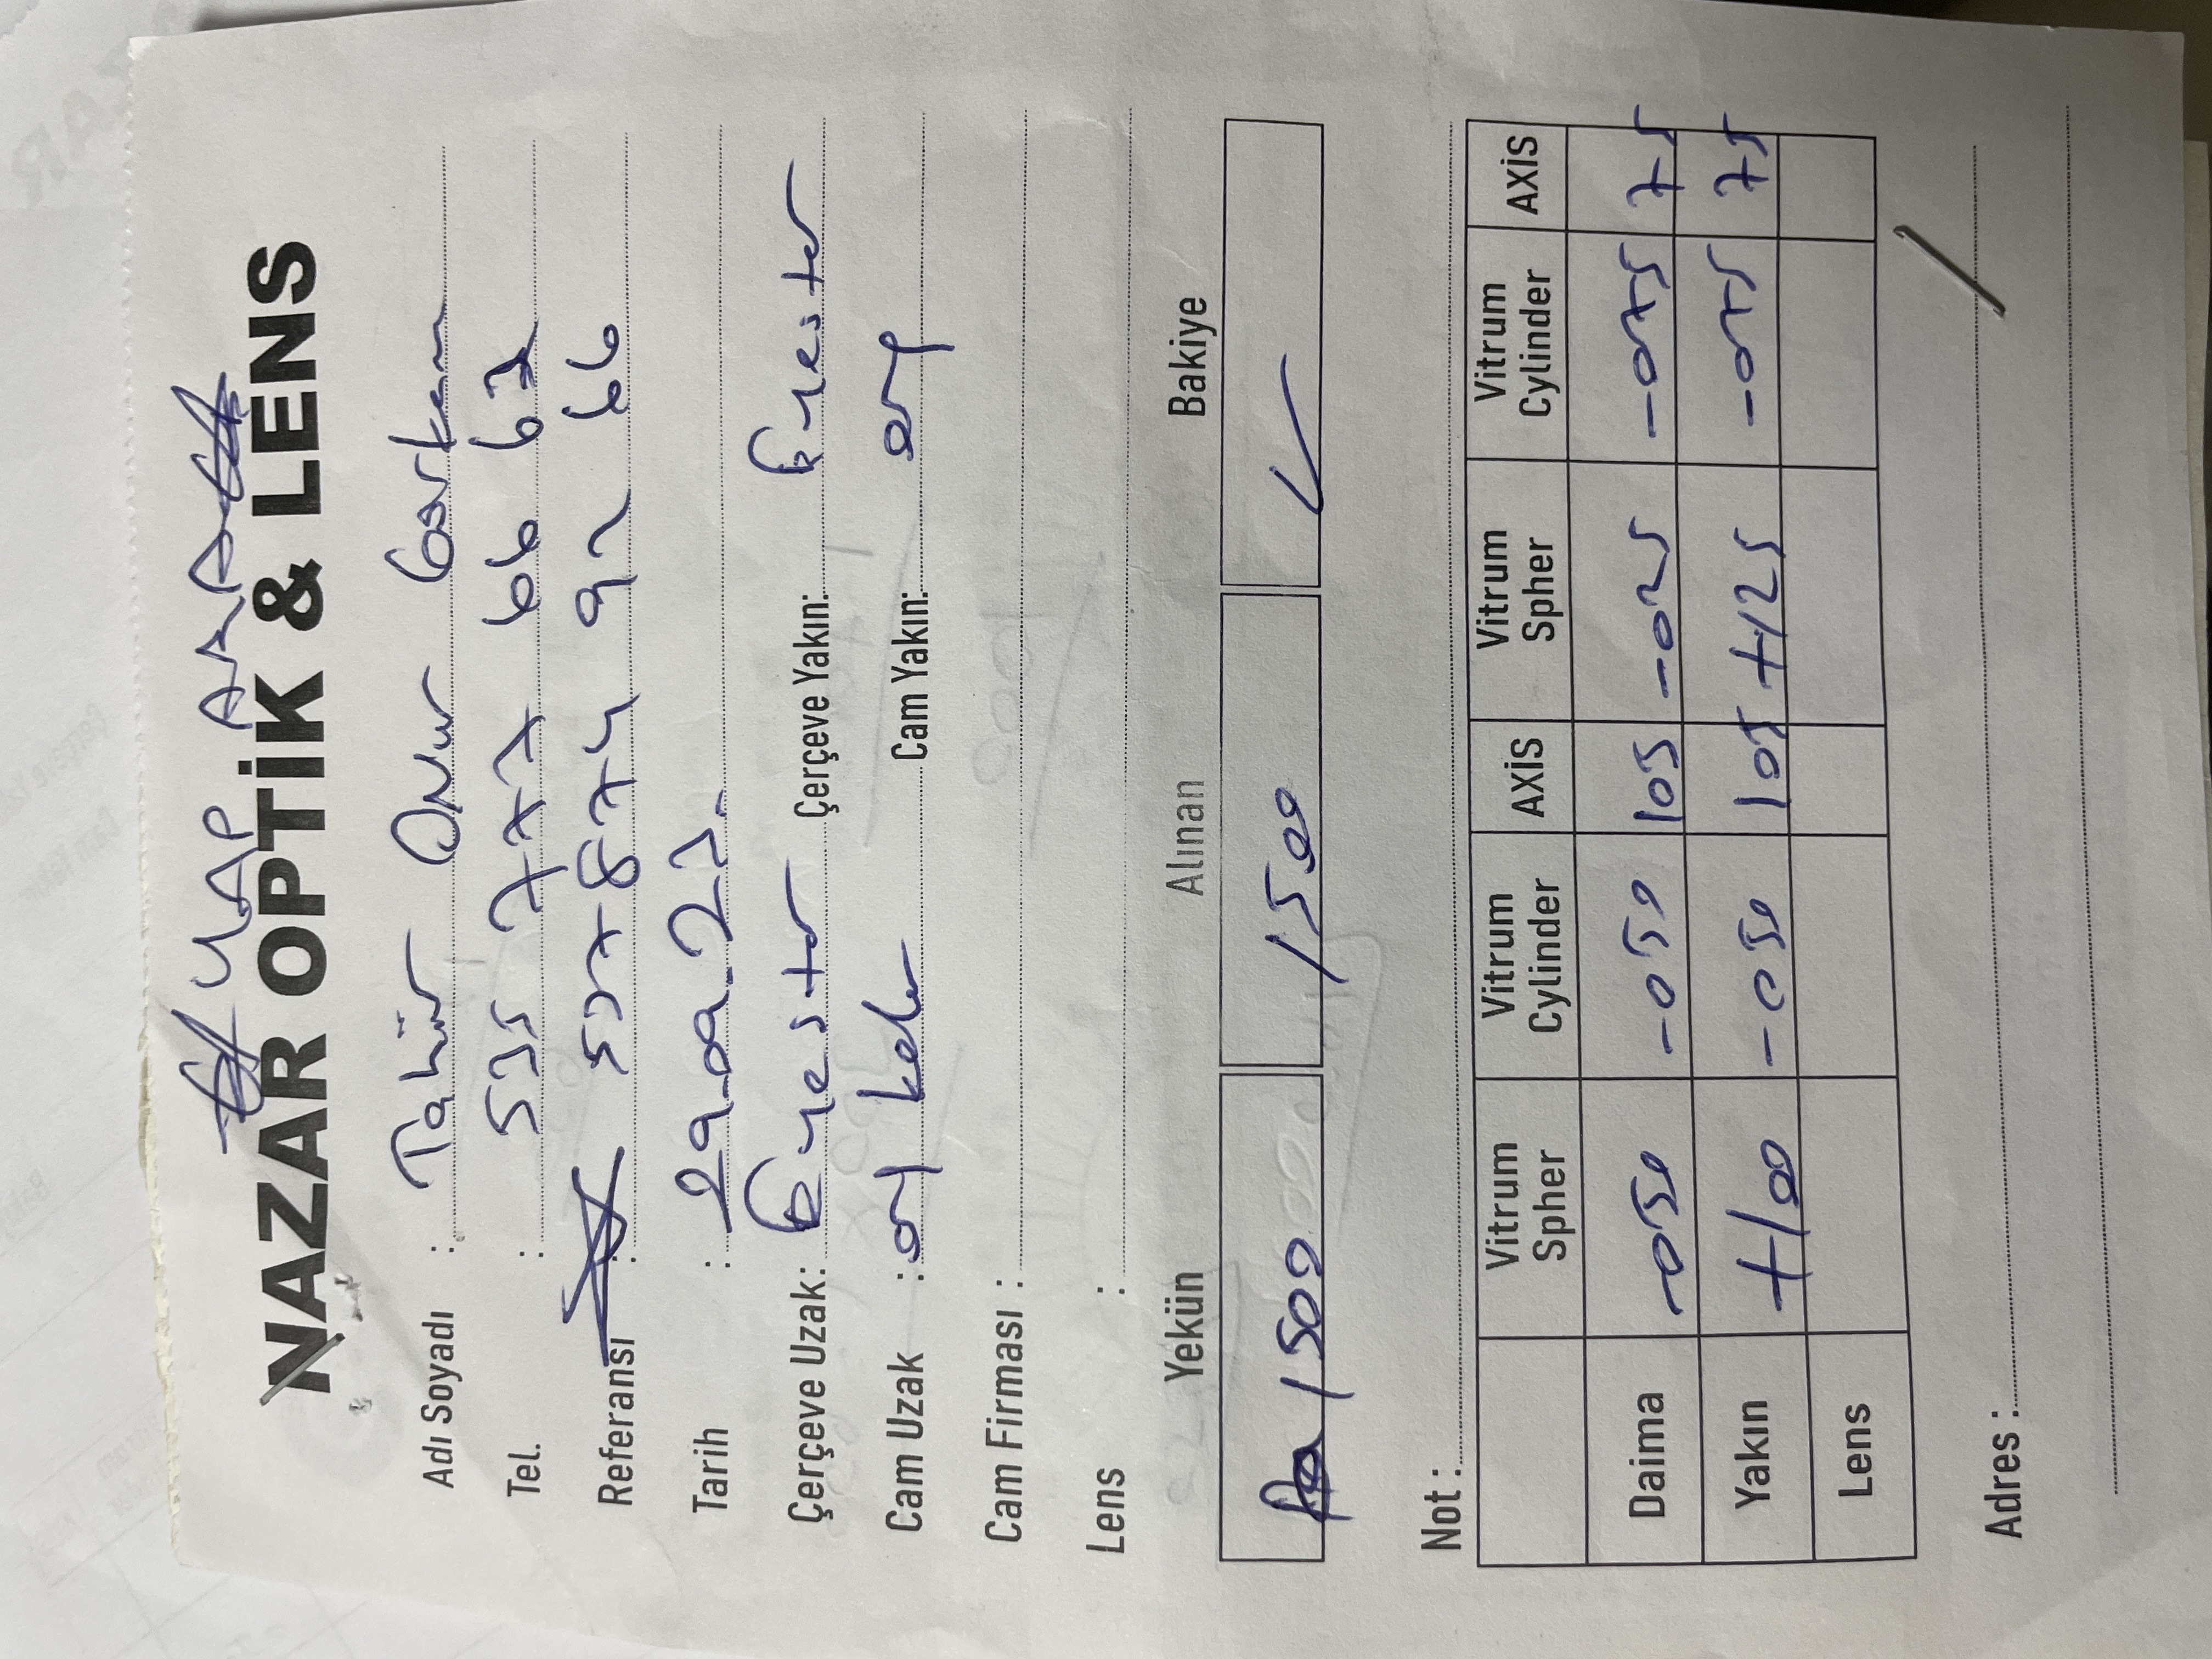 YAP ARA
NAZAR OPTİK & LENS
Adı Soyadı : Tahir Onur
Tel. : 535 777 66 62
Referansı : 537 874 92 66
Tarih : 29.09.23.
Çerçeve Uzak: Eyestar Çerçeve Yakın: Eyestar
Cam Uzak : Cam Yakın:
Cam Firması :
Lens :
Yekün Alınan Bakiye
1500 1500
Not :
Vitrum Spher Vitrum Cylinder AXİS Vitrum Spher Vitrum Cylinder AXİS
Daima -050 -050 105 -025 -075 75
Yakın +100 -050 105 +125 -075 75
Lens
Adres :